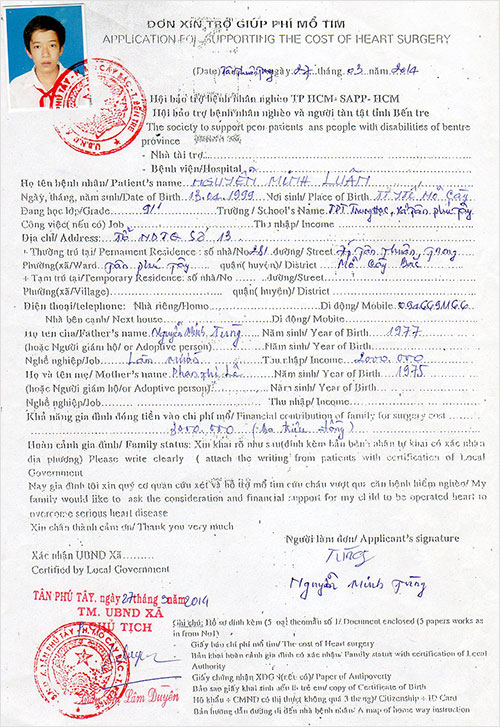 ĐƠN XIN TRỢ GIÚP PHÍ MỔ TIM
APPLICATION FOR SUPPORTING THE COST OF HEART SURGERY
(Date) ngày 27 tháng 03 năm 2014
Hội bảo trợ bệnh nhân nghèo TP HCM- SAPP- HCM
Hội bảo trợ bệnh nhân nghèo và người tàn tật tỉnh Bến tre
The society to support poor patients ans people with disabilities of bentre
province
- Nhà tài trợ
- Bệnh viên/Hospital
Họ tên bệnh nhân/ Patient's name NGUYỄN MINH LUÂN
Ngày, tháng, năm sinh/Date of Birth 13.01.1999 Nơi sinh/ Place of Birth TTYTế Mỏ Cày
Đang học lớp/Grade 9/1 Trường / School's Name
Công việc( nếu có) Job Thu nhập/ Income
Địa chỉ/ Address: Tổ NDTQ Số 13
- Thường trú tại/ Permanent Residence: số nhà/No đường/ Street Ấp Tân Thuận Trong
Phường(xã/Ward Tân phú Tây quận( huyện)/ District Mỏ Cày Bắc
- Tạm trú tại/Temporary Residence: số nhà/No đường/Street
Phường(xã/Village) quận( huyện)/ District
Điện thoại/telephone: Nhà riêng/Home Di động/ Mobile
Nhà bên cạnh/ Next house Di động/ Mobite
Họ tên cha/Father's name Nguyễn Minh Tùng Năm sinh/ Year of Birth 1977
(hoặc Người giám hộ/ or Adoptive person) Năm sinh/ Year of Birth
Nghề nghiệp/Job Làm Thu nhập/ Income 2000.000
Họ và tên mẹ/ Mother's name Phan thị Lê Năm sinh/ Year of Birth 1975
(hoặc Người giám hộ/ or Adoptive person) Năm sinh/ Year of Birth
Nghề nghiệp/Job Thu nhập/ Income
Khả năng gia đình đóng tiền vào chi phí mổ/ Financial contribution of family for surgery cost
3000.000 (ba triệu đồng)
Hoàn cảnh gia đình/ Family status: Xin khai rõ như sau(đính kèm bản bệnh nhân tự khai có xác nhân
địa phương) Please write clearly ( attach the writing from patients with certification of Local
Government
Nay gia đình tôi xin quý cơ quan cứu xét và hỗ trợ mổ tim cứu cháu vượt qua căn bệnh hiểm nghèo/ My
family would like to ask the consideration and financial support for my child to be operated heart to
overcome serious heart disease
Xin chân thành cảm ơn/ Thank you very much
Người làm đơn/ Applicant's signature
Tùng
Nguyễn Minh Tùng
Xác nhận UBND Xã
Certified by Local Government
TÂN PHÚ TÂY, ngày 27 tháng 3 năm 2014
TM. UBND XÃ
CHỦ TỊCH
Lâm Duyên
Ghi chú: Hồ sơ đính kèm (5 loại theo mẫu số 1/ Document enclosed (5 papers works as
in From No1)
- Giấy báo chi phí mổ tim/ The cost of Heart surgery
- Bản khai hoàn cảnh gia đình có xác nhân/ Family status with certification of Local
Authority
- Giấy chứng nhận XĐGN(nếu có)/ Paper of Antipoverty
- Bản sao giấy khai sinh nếu là trẻ em/ copy of Certificate of Birth
- Hộ khẩu + CMND có thị thực( không quá 3 the ngq)/ Citizenship + ID Card
- Bản hướng dẫn đường đi đến nhà bệnh nhân/ A map of home way instruction